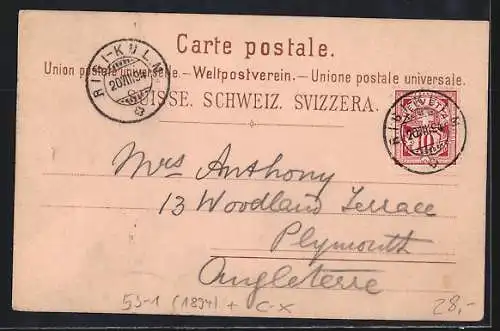 Carte postale.
Union postale universelle. – Weltpostverein. – Unione postale universale.
SUISSE. SCHWEIZ. SVIZZERA.
RIGI-KULM
20.VII.94
HELVETIA
10
RIGI-KULM
20.VII.94
Mrs Anthony
13 Woodland Terrace
Plymouth
Angleterre
53-1 (1894) + C-X
28,-